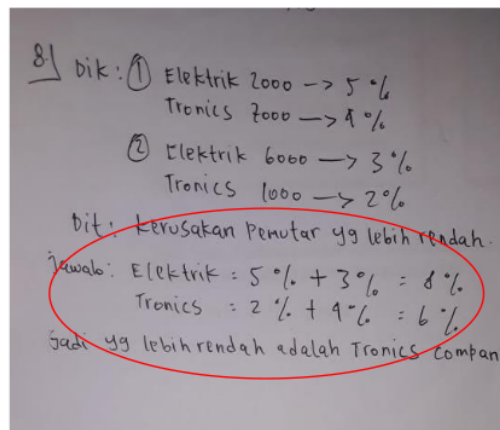 8.) Dik : ① Elektrik 2000 –> 5 %
Tronics 7000 –> 4 %
② Elektrik 6000 –> 3 %
Tronics 1000 –> 2 %
Dit : kerusakan pemutar yg lebih rendah.
jawab : Elektrik = 5 % + 3 % = 8 %
Tronics = 2 % + 4 % = 6 %
jadi yg lebih rendah adalah Tronics compan